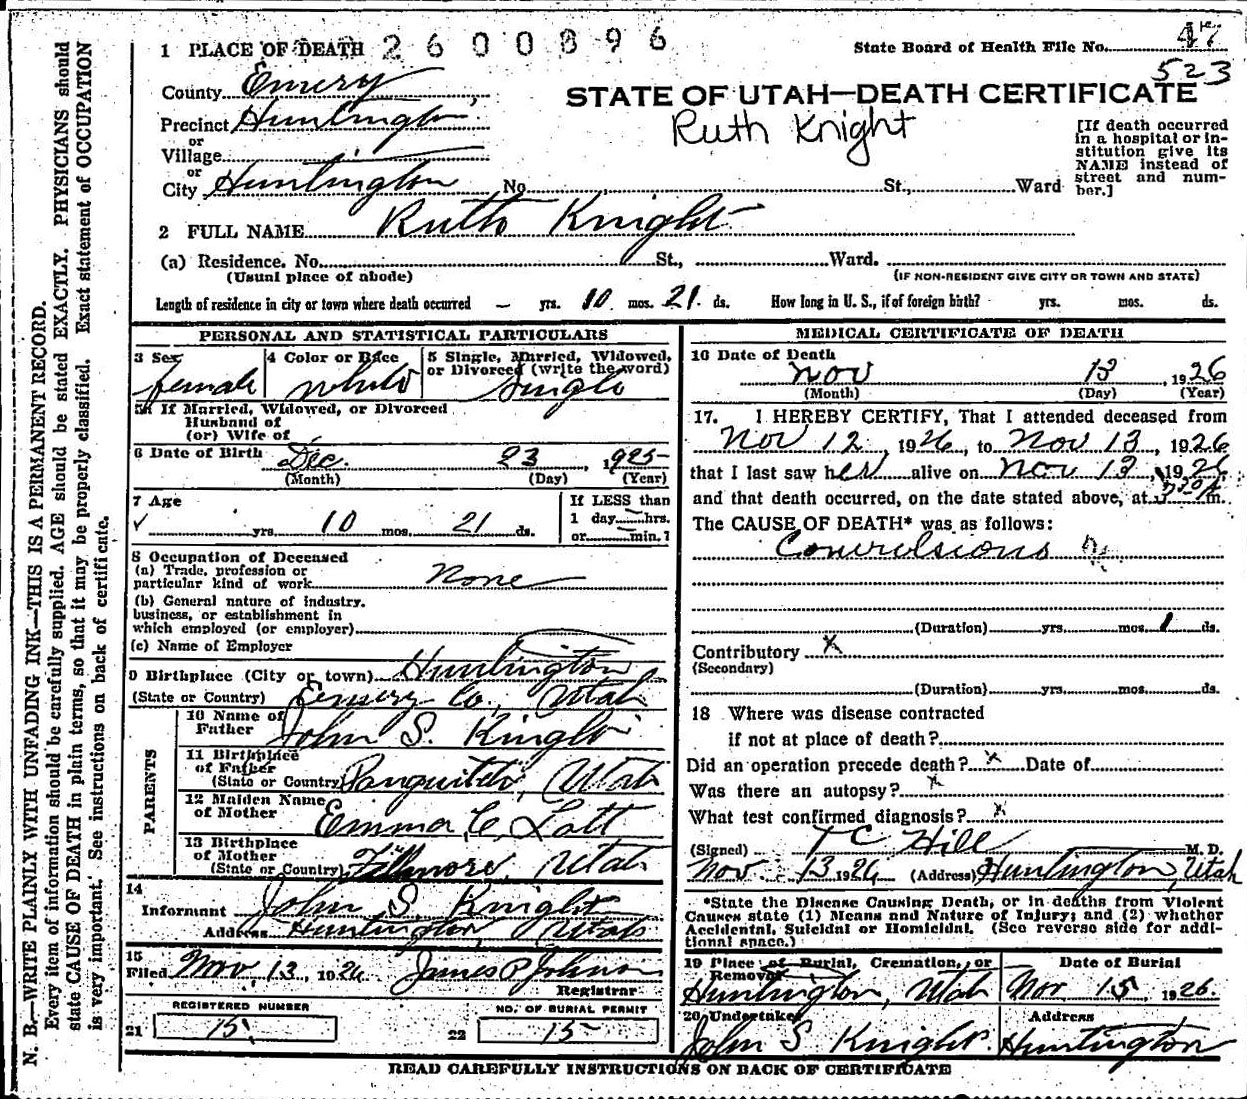 N. B.—WRITE PLAINLY WITH UNFADING INK—THIS IS A PERMANENT RECORD.
Every item of information should be carefully supplied. AGE should be stated EXACTLY. PHYSICIANS should
state CAUSE OF DEATH in plain terms, so that it may be properly classified. Exact statement of OCCUPATION
is very important. See instructions on back of certificate.
1 PLACE OF DEATH 2600896 State Board of Health File No. 47
523
County Emery
STATE OF UTAH—DEATH CERTIFICATE
Precinct Huntington Ruth Knight
or
Village
or
City Huntington No. St., Ward
[If death occurred
in a hospital or in-
stitution give its
NAME instead of
street and num-
ber.]
2 FULL NAME Ruth Knight
(a) Residence. No. St., Ward.
(Usual place of abode) (IF NON-RESIDENT GIVE CITY OR TOWN AND STATE)
Length of residence in city or town where death occurred — yrs. 10 mos. 21 ds. How long in U. S., if of foreign birth? yrs. mos. ds.
PERSONAL AND STATISTICAL PARTICULARS
3 Sex female
4 Color or Race white
5 Single, Married, Widowed,
or Divorced (write the word)
Single
5a If Married, Widowed, or Divorced
Husband of
(or) Wife of
6 Date of Birth Dec. 23, 1925
(Month) (Day) (Year)
7 Age
yrs. 10 mos. 21 ds.
If LESS than
1 day hrs.
or min.?
8 Occupation of Deceased
(a) Trade, profession or
particular kind of work None
(b) General nature of industry,
business, or establishment in
which employed (or employer)
(c) Name of Employer
9 Birthplace (City or town) Huntington
(State or Country) Emery Co., Utah
PARENTS
10 Name of
Father John S. Knight
11 Birthplace
of Father
(State or Country) Panguitch, Utah
12 Maiden Name
of Mother Emma C. Lott
13 Birthplace
of Mother
(State or Country) Fillmore, Utah
14
Informant John S. Knight
Address Huntington Utah
15
Filed Nov 13, 1926 James P Johnson
Registrar
REGISTERED NUMBER NO. OF BURIAL PERMIT
21 15 22 15
MEDICAL CERTIFICATE OF DEATH
16 Date of Death
Nov 13, 1926
(Month) (Day) (Year)
17. I HEREBY CERTIFY, That I attended deceased from
Nov 12, 1926, to Nov 13, 1926
that I last saw her alive on Nov 13, 1926
and that death occurred, on the date stated above, at m.
The CAUSE OF DEATH* was as follows:
Convulsions
(Duration) yrs. mos. 1 ds.
Contributory x
(Secondary)
(Duration) yrs. mos. ds.
18 Where was disease contracted
if not at place of death?
Did an operation precede death? x Date of
Was there an autopsy? x
What test confirmed diagnosis? x
(Signed) T C Hill M. D.
Nov 13 1926 (Address) Huntington, Utah
*State the Disease Causing Death, or in deaths from Violent
Causes state (1) Means and Nature of Injury; and (2) whether
Accidental, Suicidal or Homicidal. (See reverse side for addi-
tional space.)
19 Place of Burial, Cremation, or
Removal
Huntington, Utah
Date of Burial
Nov 15 1926
20 Undertaker
John S Knight.
Address
Huntington
READ CAREFULLY INSTRUCTIONS ON BACK OF CERTIFICATE